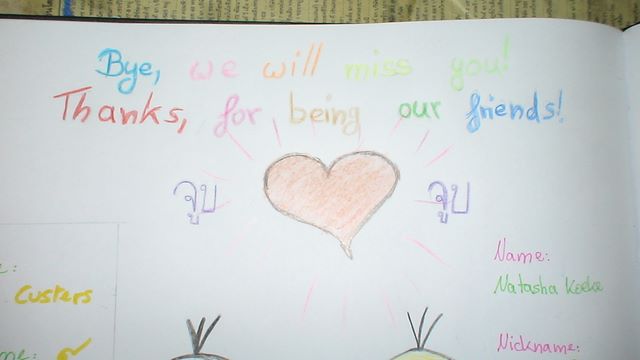 Bye, we will miss you!
Thanks, for being our friends!
จูบ จูบ
Name:
Natasha Koeke
Custers
Nickname: